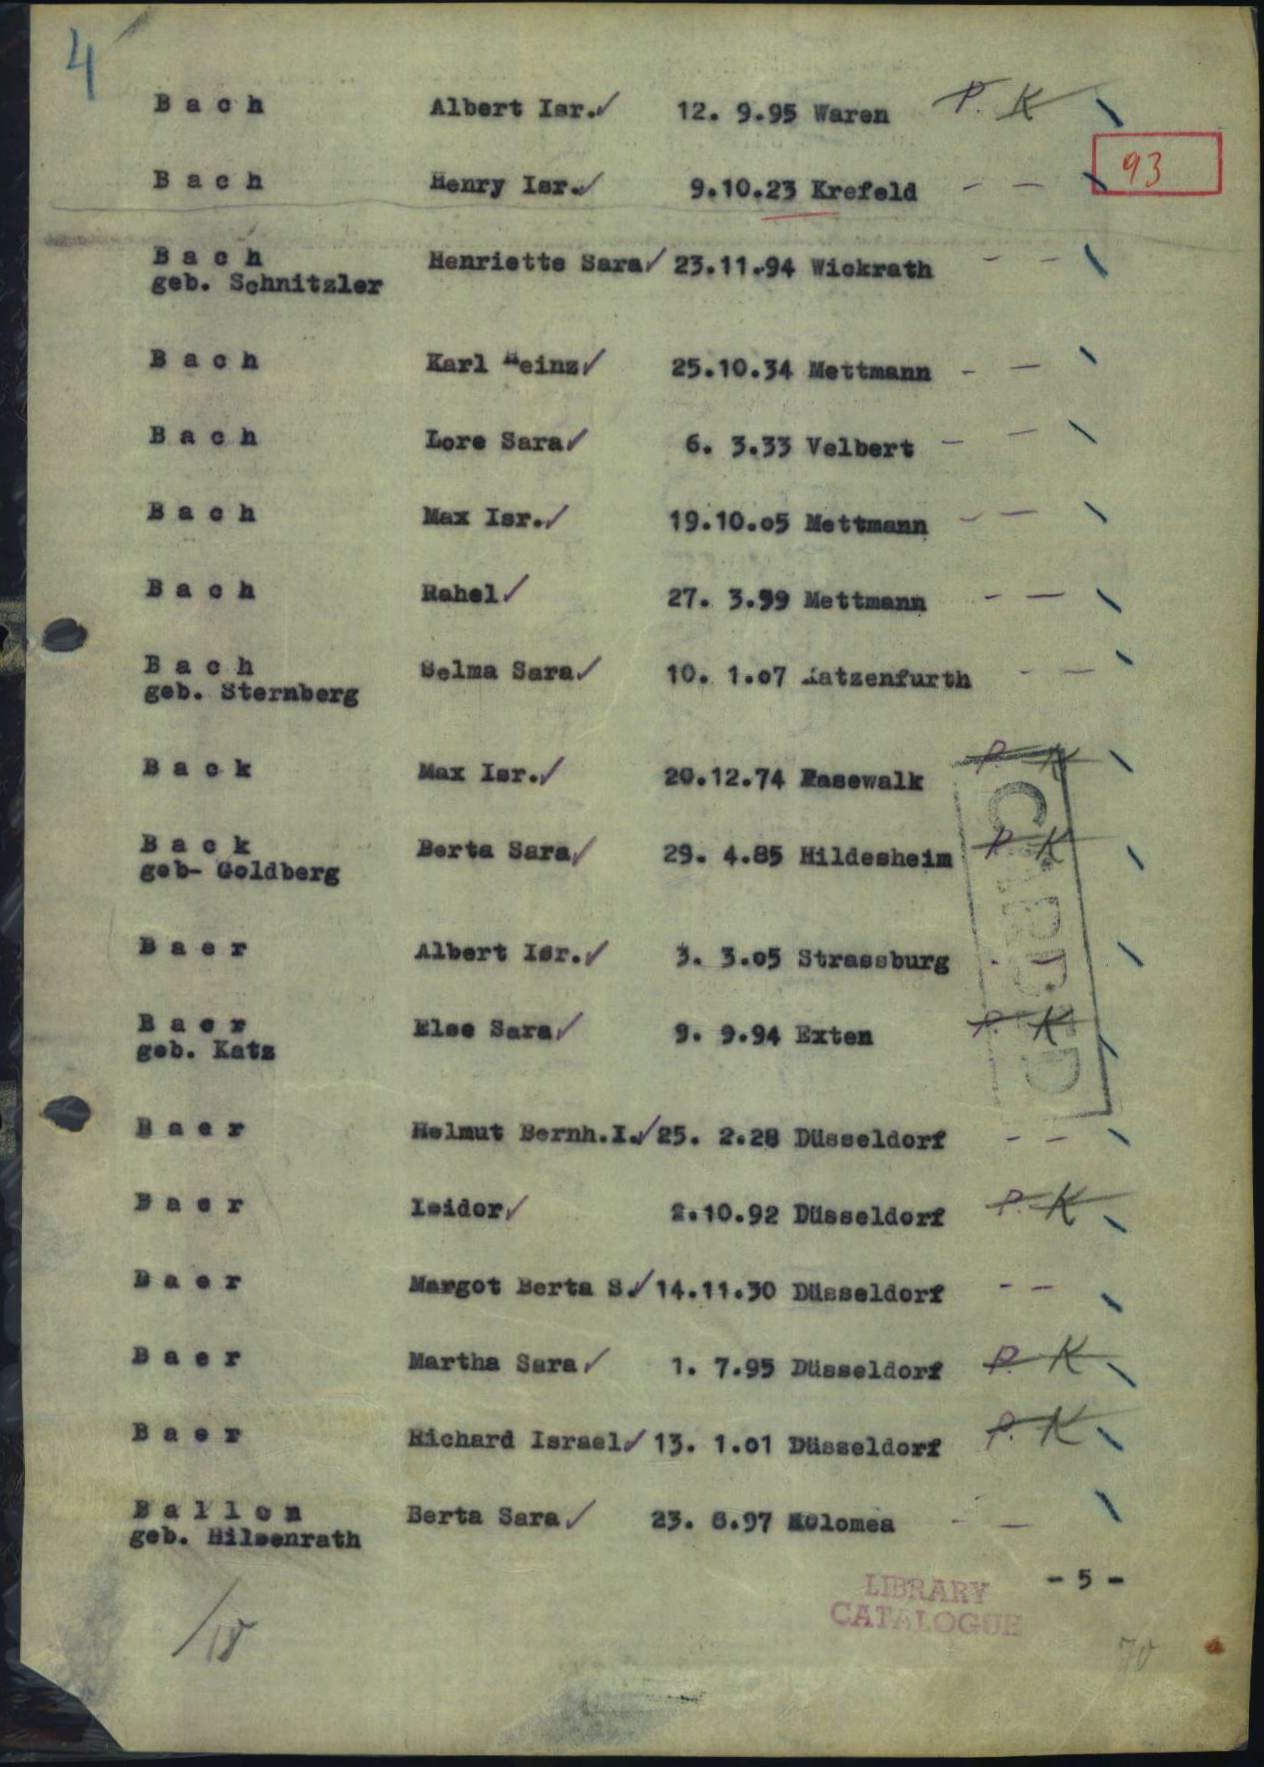 4
B a c h Albert Isr. 12. 9.95 Waren P. K
93
B a c h Henry Isr. 9.10.23 Krefeld - -
B a c h Henriette Sara 23.11.94 Wickrath - -
geb. Schnitzler
B a c h Karl Heinz 25.10.34 Mettmann - -
B a c h Lore Sara 6. 3.33 Velbert - -
B a c h Max Isr. 19.10.05 Mettmann - -
B a c h Rahel 27. 3.99 Mettmann - -
B a c h Selma Sara 10. 1.07 Katzenfurth - -
geb. Sternberg
B a c k Max Isr. 20.12.74 Pasewalk P. K
CARDED
B a c k Berta Sara 29. 4.85 Hildesheim P. K
geb- Goldberg
B a e r Albert Isr. 3. 3.05 Strassburg - -
B a e r Else Sara 9. 9.94 Exten P. K
geb. Katz
B a e r Helmut Bernh.I. 25. 2.28 Düsseldorf - -
B a e r Isidor 2.10.92 Düsseldorf P. K
B a e r Margot Berta S. 14.11.30 Düsseldorf - -
B a e r Martha Sara 1. 7.95 Düsseldorf P. K
B a e r Richard Israel 13. 1.01 Düsseldorf P. K
B a l l o n Berta Sara 23. 8.97 Kolomea - -
geb. Hilsenrath
- 5 -
LIBRARY
CATALOGUE
/18
70